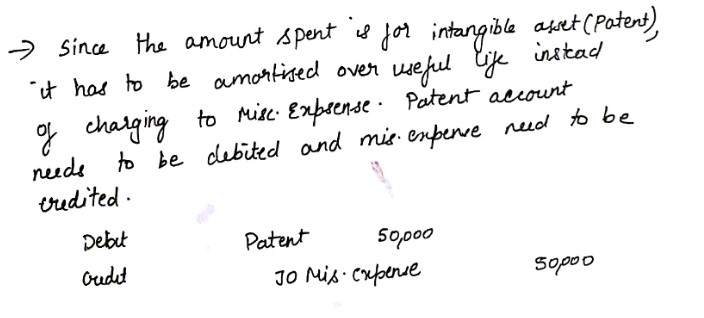 → Since the amount spent is for intangible asset (Patent),
it has to be amortised over useful life instead
of charging to Misc. Expsense. Patent account
needs to be debited and mis. expense need to be
credited.
Debit Patent 50,000
Credit TO Mis. expense 50,000